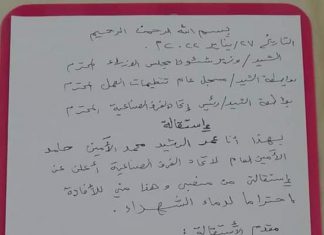 بسم الله الرحمن الرحيم
التاريخ ٢٧/يناير ٢٠٢٢م.
السيد/ وزير شئون مجلس الوزراء المحترم
بواسطة السيد/ مسجل عام تنظيمات العمل المحترم
بواسطة السيد/ رئيس إتحاد الغرف الصناعية المحترم
إستقالة
بهذا أنا محمد الرشيد محمد الأمين حامد
الأمين العام لاتحاد الغرف الصناعية أعلن عن
إستقالة من منصبي وهذا مني للأفادة
إحتراما لدماء الشهداء.
مقدم الأستقالة :